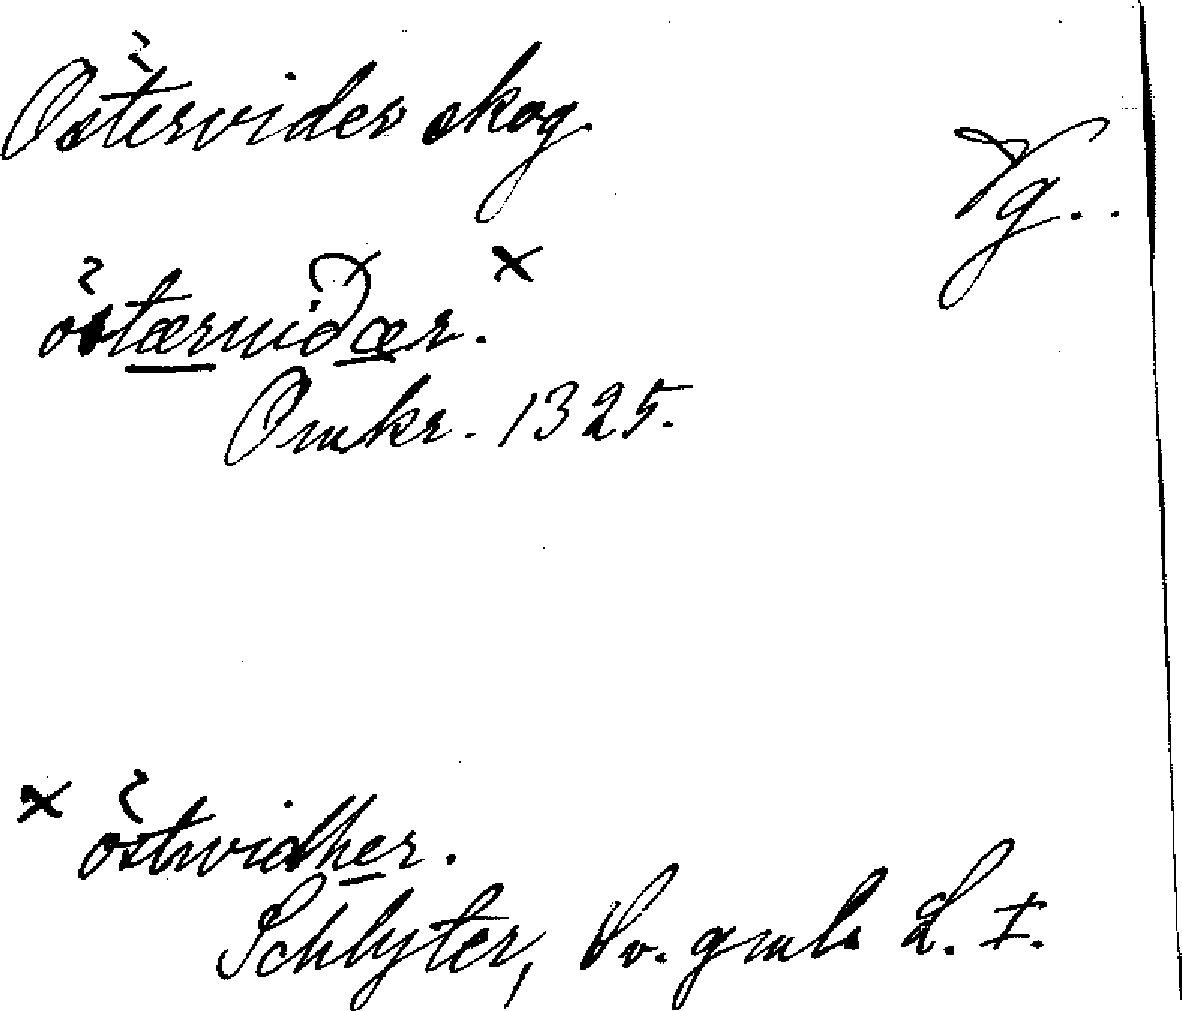 Östervider skog.
Vg..
östæruiðær. x
Omkr. 1325.
x östwidher.
Schlyter, Sv. gmla L. I.